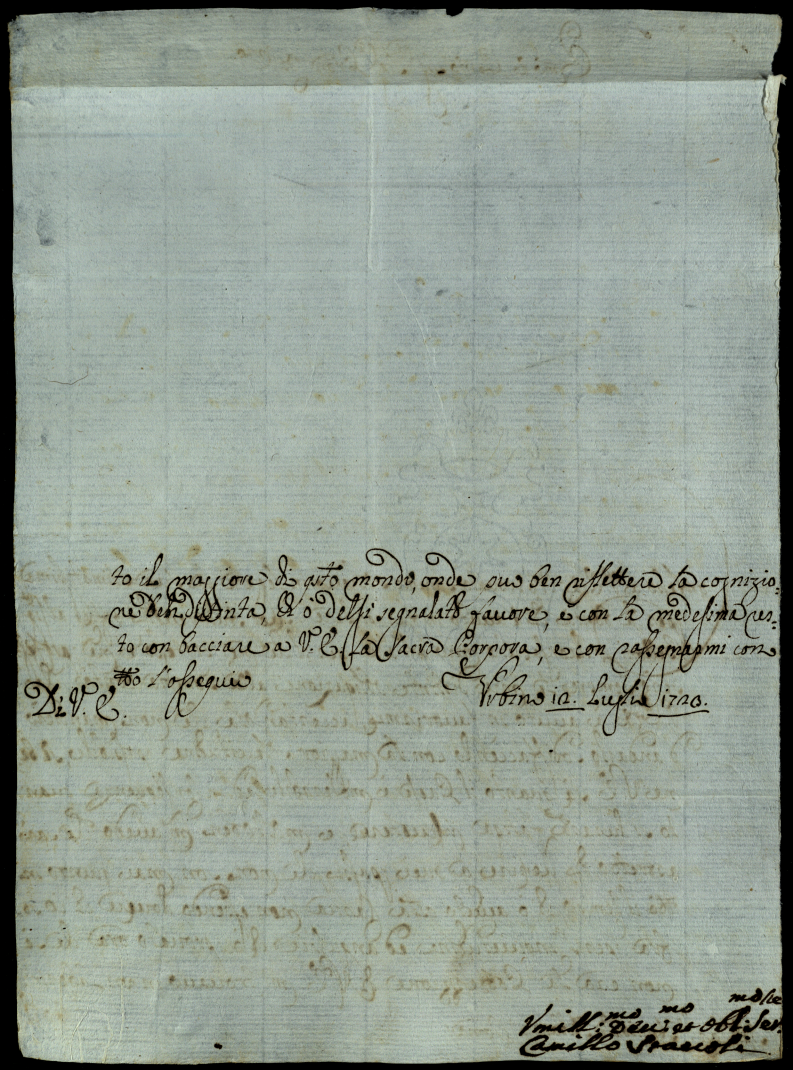 to il maggiore di qsto mondo, onde può ben riflettere la cognizio-
ne ben distinta, di o delsi segnalatō favore, e con la medesima res-
to con bacciare a V. E. la Sacra Porpora, e con rassegnarmi con
tto l'ossequio
Di V. E. Urbino 12. Luglio 1720.
Vmill:mo Deu:mo et Obl:mo Ser.re
Camillo Staccoli